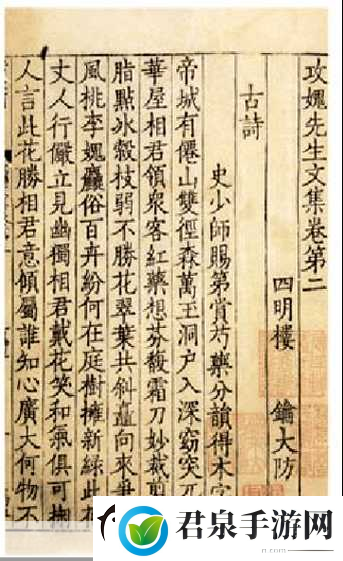 攻媿先生文集卷第二
四明樓 鑰大防
古詩
史少師賜第賞芍藥分韻得木字
帝城有僊山雙徑森萬玉洞户入深窈突兀
華屋相君領衆客紅藥想芬馥霜刀妙裁剪
脂點冰縠枝弱不勝花翠葉共斜矗向來
風桃李媿麤俗百卉紛何在庭樹擁新緑此花
丈人行儼立見幽獨相君戴花笑和氣俱可掬
人言此花勝相君意傾屬誰知心廣大何物不
君泉手游网